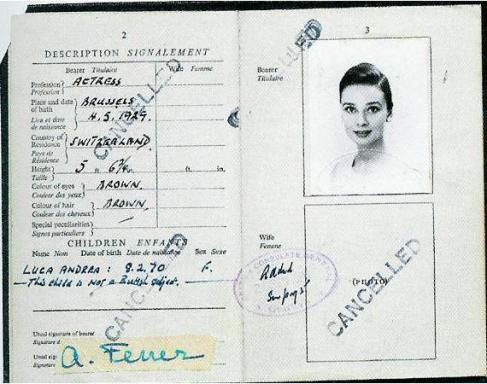 2
DESCRIPTION SIGNALEMENT
Bearer Titulaire
Wife Femme
Profession Profession
ACTRESS
Place and date of birth
Lieu et date de naissance
BRUSSELS
4.5.1929.
Country of Residence
Pays de Résidence
SWITZERLAND
Height Taille
5 6¾
ft. in.
Colour of eyes
Couleur des yeux
BROWN.
Colour of hair
Couleur des cheveux
BROWN.
Special peculiarities
Signes particuliers
CHILDREN ENFANTS
Name Nom Date of birth Date de naissance Sex Sexe
LUCA ANDREA : 8.2.70
This child is not a British subject.
Usual signature of bearer
Signature d
Usual sig
Signature
A. Ferrer
CANCELLED
CANCELLED
3
Bearer
Titulaire
Wife
Femme
(PHOTO)
CANCELLED